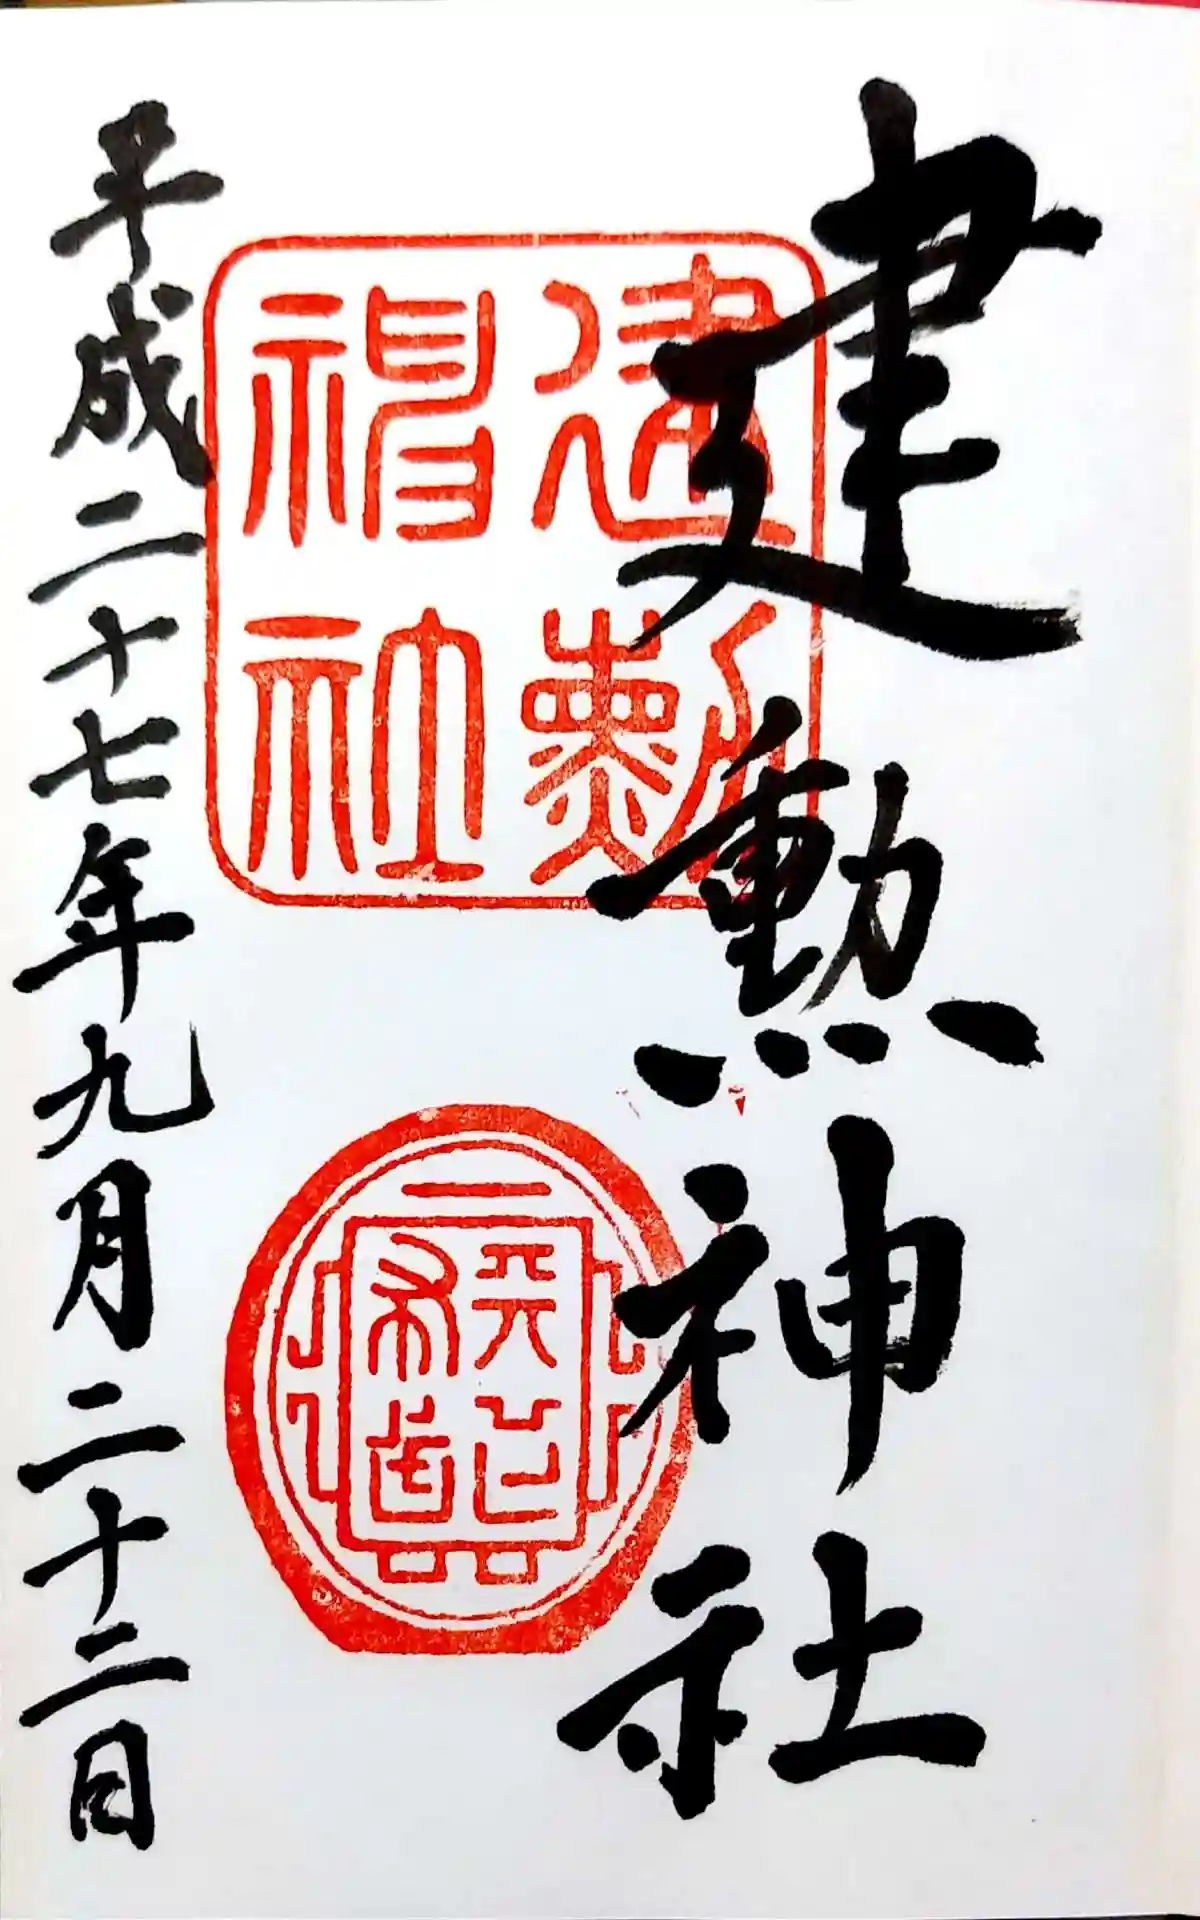 建勲神社
建勲神社
天下布武
平成二十七年九月二十二日